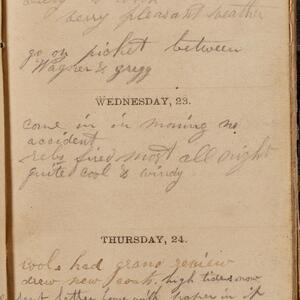 very pleasant weather
go on picket between
Wagner & gregg
WEDNESDAY, 23.
come in in morning no
accident
rebs fired most all night
quite cool & windy
THURSDAY, 24.
cool & had grand review
drew new coat. high tides now
sent letter home with paper in it